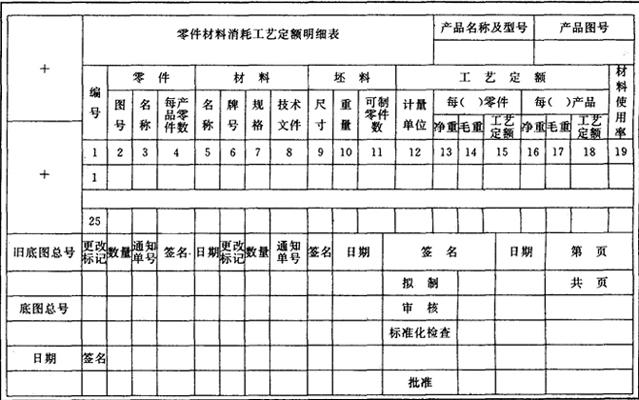 零件材料消耗工艺定额明细表 产品名称及型号 产品图号
编号 零件 材料 坯料 工艺定额 材料使用率
图号 名称 每产品零件数 名称 牌号 规格 技术文件 尺寸 重量 可制零件数 计量单位 每( )零件 每( )产品
净重 毛重 工艺定额 净重 毛重 工艺定额
1 2 3 4 5 6 7 8 9 10 11 12 13 14 15 16 17 18 19
1
25
旧底图总号 更改标记 数量 通知单号 签名 日期 更改标记 数量 通知单号 签名 日期 签名 日期 第 页
拟制 共 页
底图总号 审核
标准化检查
日期 签名
批准